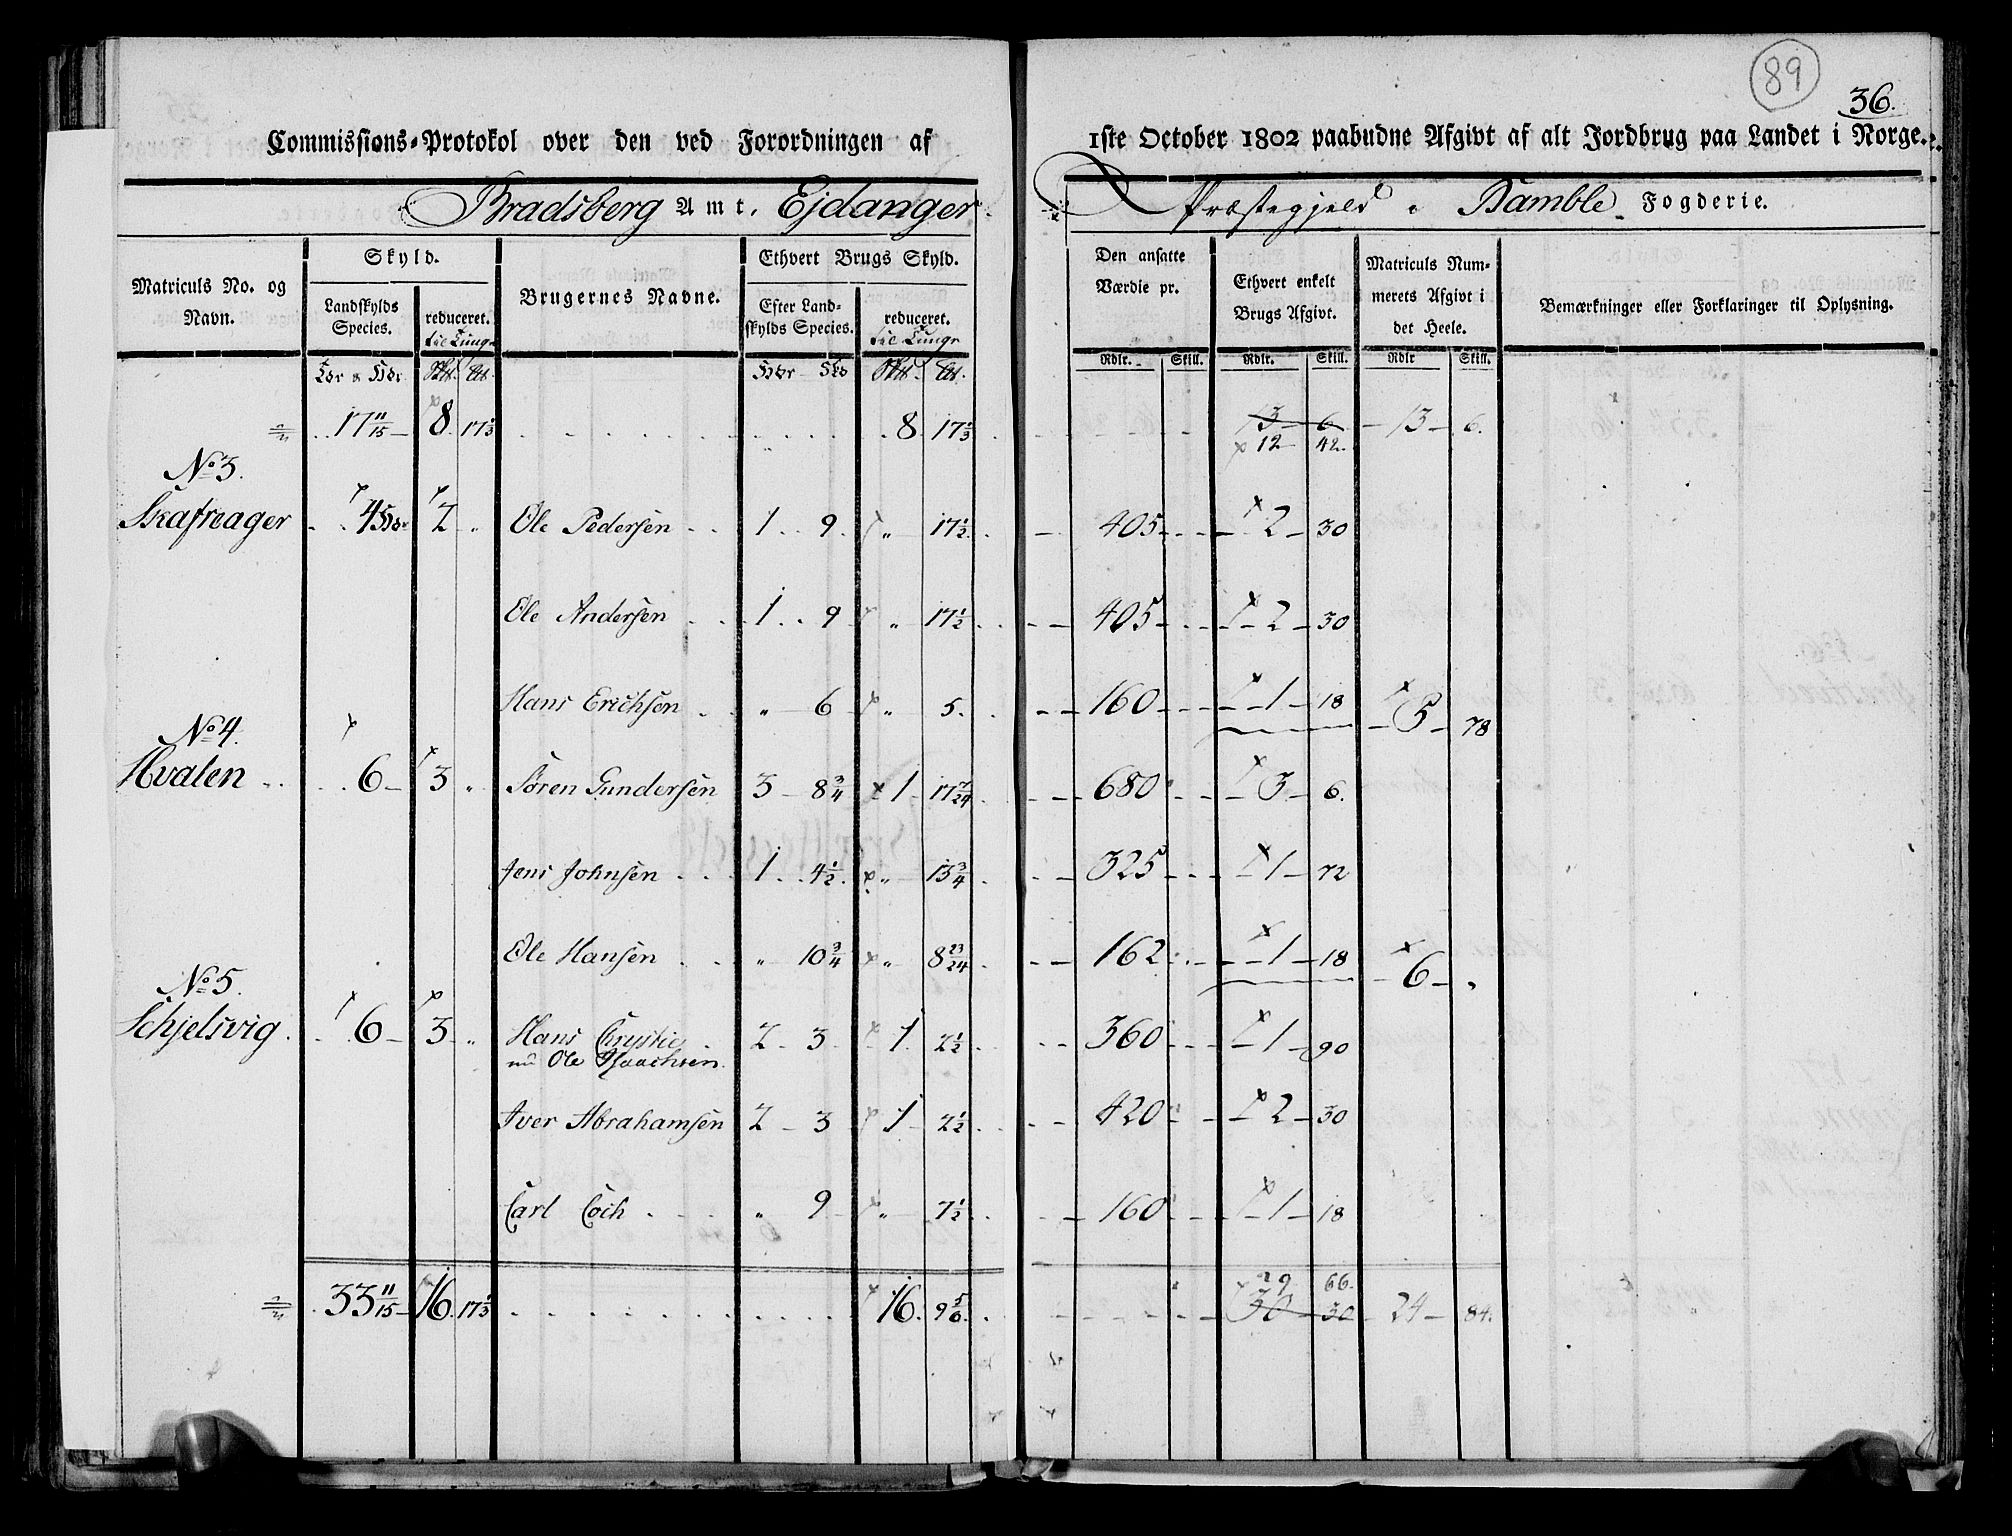 89
36.
Commissions-Protokol over den ved Forordningen af 1ste October 1802 paabudne Afgivt af alt Jordbrug paa Landet i Norge.
Bradsberg Amt, Ejdanger Præstegjeld i Bamble Fogderie.
Matriculs No. og Navn.
Skyld.
Landskylds Species.
reduceret.
Brugernes Navne.
Ethvert Brugs Skyld.
Efter Landskylds Species.
reduceret.
Den ansatte Værdie pr.
Ethvert enkelt Brugs Afgivt.
Matriculs Nummerets Afgivt i det Heele.
Bemærkninger eller Forklaringer til Oplysning.
Rdlr. Skill. Rdlr. Skill. Rdlr Skill.
17 11/15 8. 17 1/3 8. 17 1/3 13 6 13 6.
12 42.
No 3.
Skafreager 4 2 " Ole Pedersen 1 9 " 17 1/2 405 2 30
Ole Andersen 1 9 " 17 1/2 405 2 30
Hans Erichsen " 6 " 5. 160 1 18 5 78
No 4.
Hvalen 6 3 " Søren Gundersen 3 8 3/4 1 17 7/24 680 3 6.
Jens Johnsen 1 4 1/2 " 13 3/4 325 1 72
Ole Hansen " 10 3/4 " 8 23/24 162 1 18 6 "
No 5.
Schjelsvig 6 3 " Hans Chrystie 2 3 1 2 1/2 360 1 90
nu Ole Isaachsen.
Iver Abrahamsen 2 3 1 2 1/2 420 2 30
Carl Coch " 9 " 7 1/2 160 1 18
29 66.
33 11/15 16. 17 1/3 16. 9 5/6 30 30 24 84.